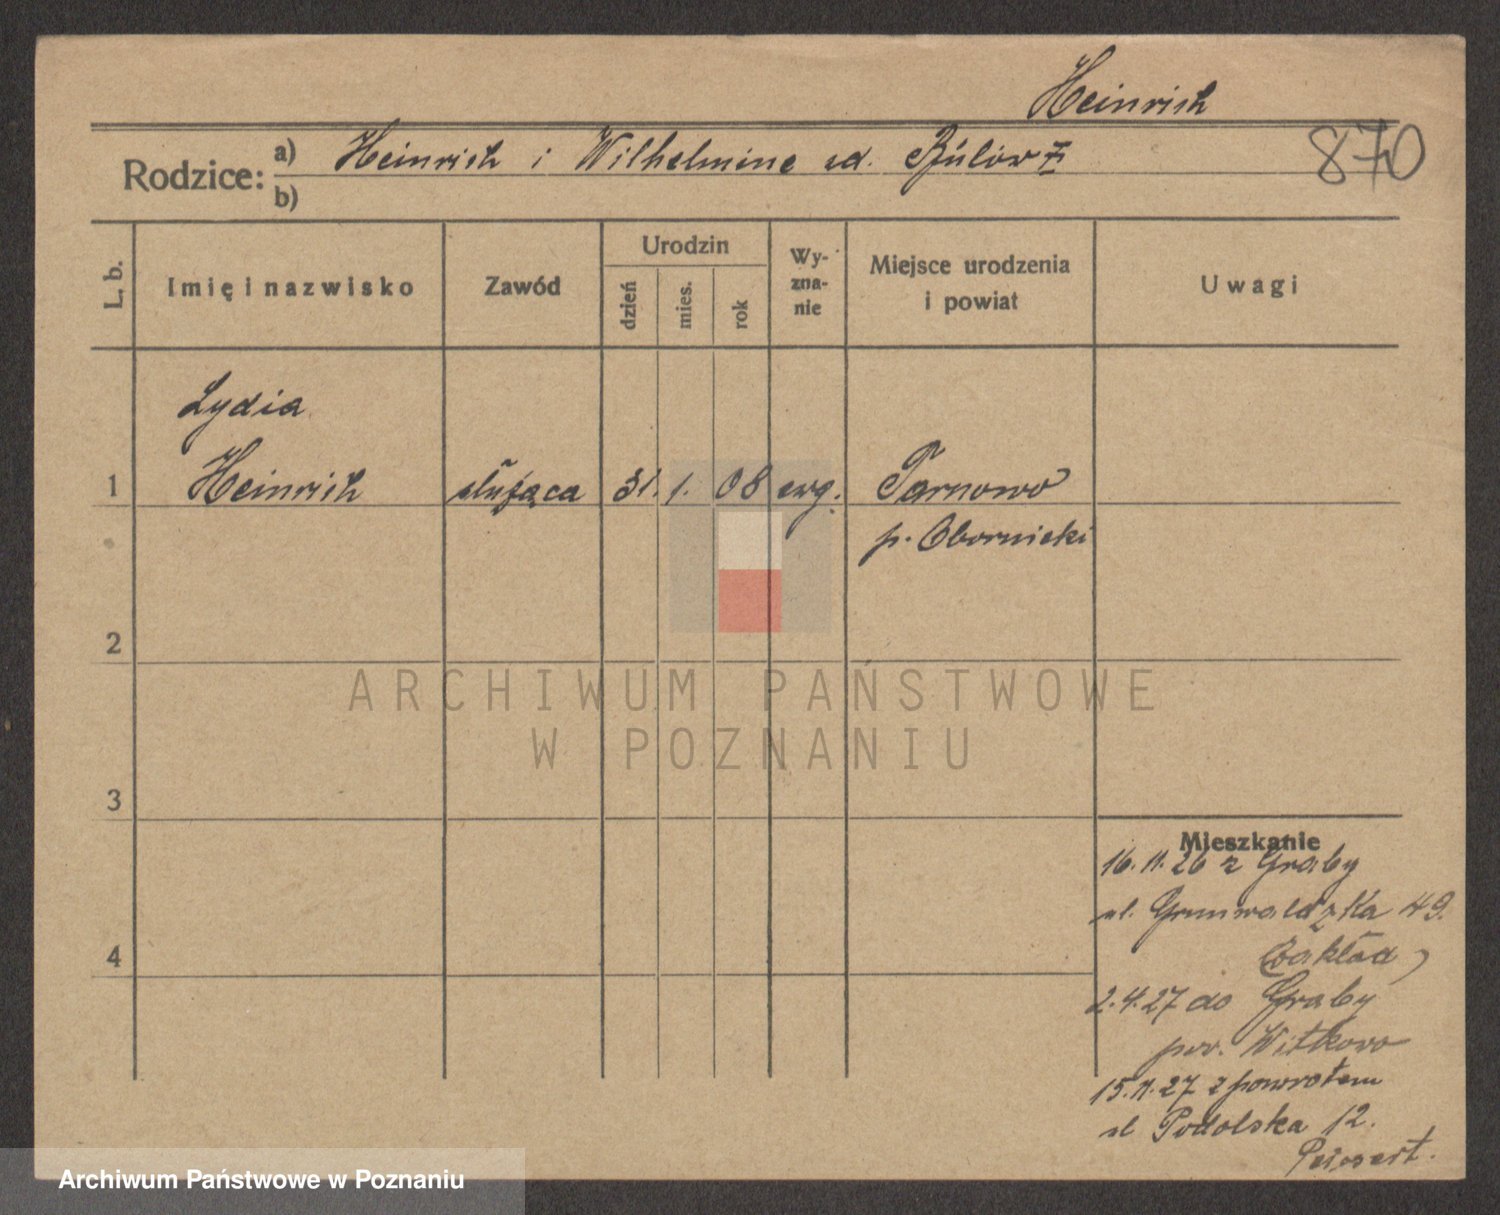 Heinrich
870
Rodzice: a) Heinrich i Wilhelmine zd. Bülow
b)
L. b.
Imię i nazwisko
Zawód
Urodzin
dzień
mies.
rok
Wy-
zna-
nie
Miejsce urodzenia
i powiat
Uwagi
Lydia
1 Heinrich służąca 31. 1. 08 ewg. Parnowo
p. Obornicki
2
3
4
ARCHIWUM PAŃSTWOWE
W POZNANIU
Mieszkanie
16.11.26 z Graby
ul. Grunwaldzka 49.
(Zakład)
2.4.27 do Graby
pow. Witkowo
15.11.27 z powrotem
ul Podolska 12.
Archiwum Państwowe w Poznaniu